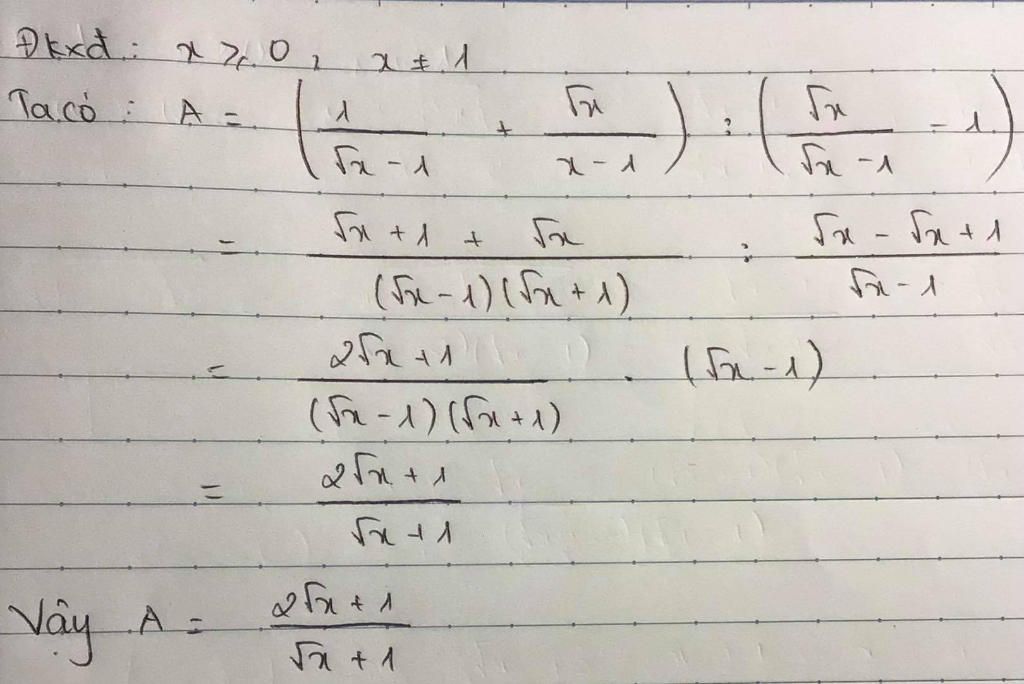 Đkxđ : x ≥ 0 , x ≠ 1
Ta có : A = ( 1/(√x - 1) + √x/(x - 1) ) : ( √x/(√x - 1) - 1 )
= (√x + 1 + √x)/((√x - 1)(√x + 1)) : (√x - √x + 1)/(√x - 1)
= (2√x + 1)/((√x - 1)(√x + 1)) . (√x - 1)
= (2√x + 1)/(√x + 1)
Vậy A = (2√x + 1)/(√x + 1)